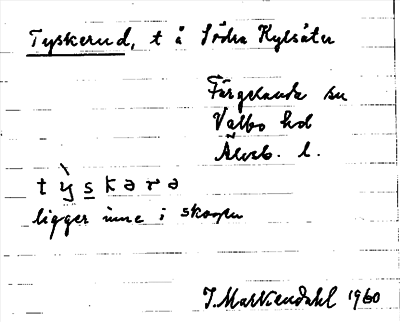 Tyskerud, t å Södra Kylsäter
Färgelanda sn
Valbo hd
Älvsb. l.
tyskara
ligger inne i skogen
J. Markendahl 1960